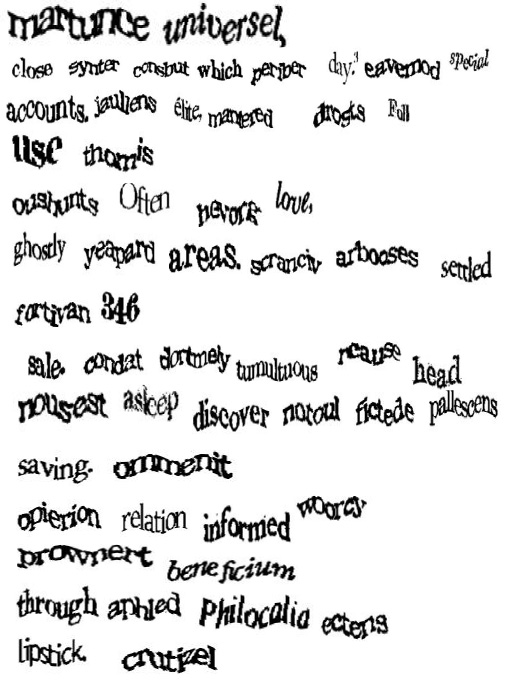 martunce universel,
close synter consbut which periber day.' eavemod special
accounts. jauliens élite, mantered drogts Full
use thomis
oushunts Often nevork love,
ghostly yeapard areas. scranciv arbooses settled
fortivan 346
sale. condat dortmely tumultuous rcause head
nousest asleep discover notoul fictede pallescens
saving. ommenit
opierion relation informed woorcy
prownert beneficium
through aphled Philocalia ectens
lipstick. crutizel